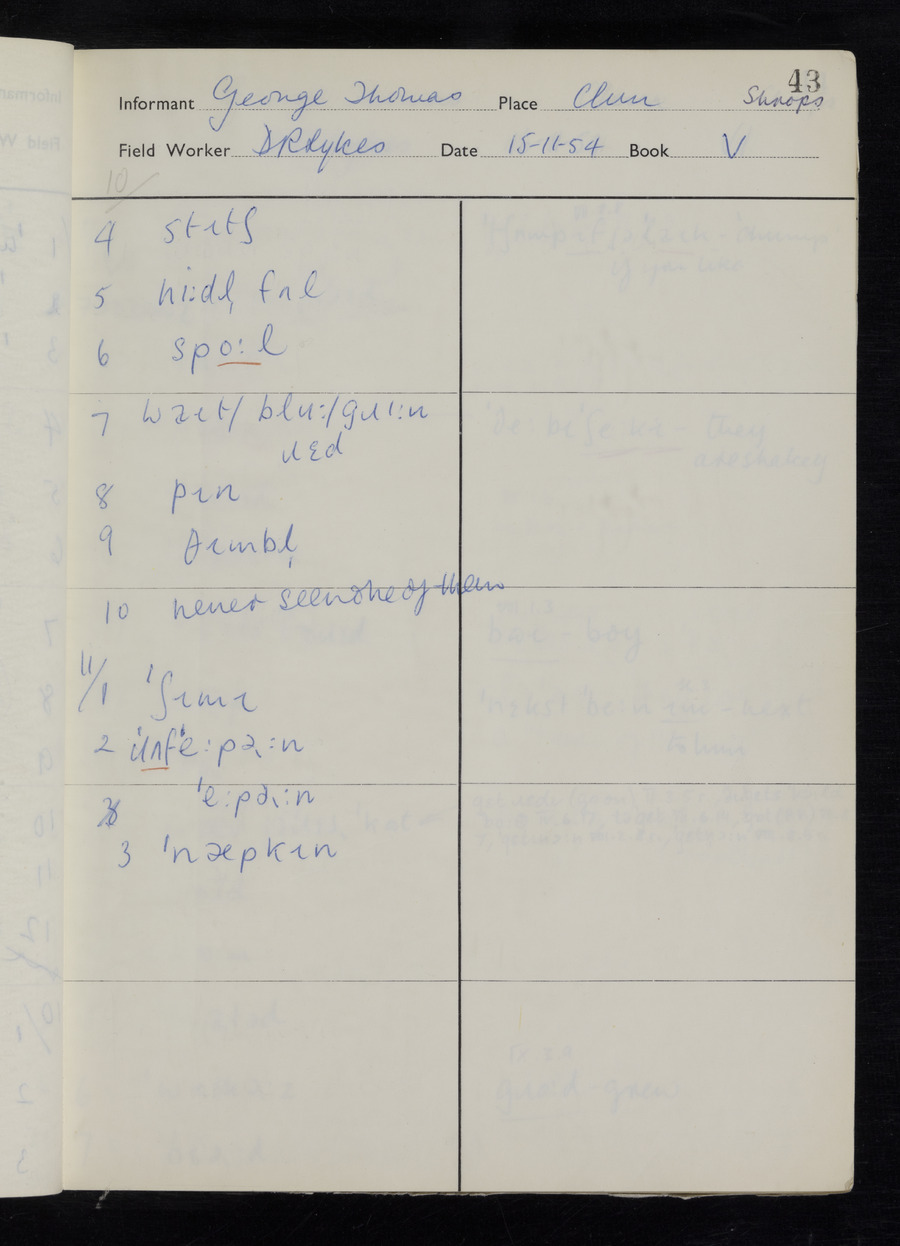 43
Informant George Thomas Place Clun Shrops
Field Worker DRSykes Date 15-11-54 Book V
10/
4 stɪtʃ
5 ni:dl̩ fʌl
6 spo:l
7 waɪt/ blu:/gɹi:n
ɹɛd
8 pɪn
9 θɪmbl̩
10 never seen one of them
11/1 ˈʃɪmɪ
2 ˈɹʌfˈe:pəɹ:n
ˈe:pəɹ:n
3 ˈnæpkɪn